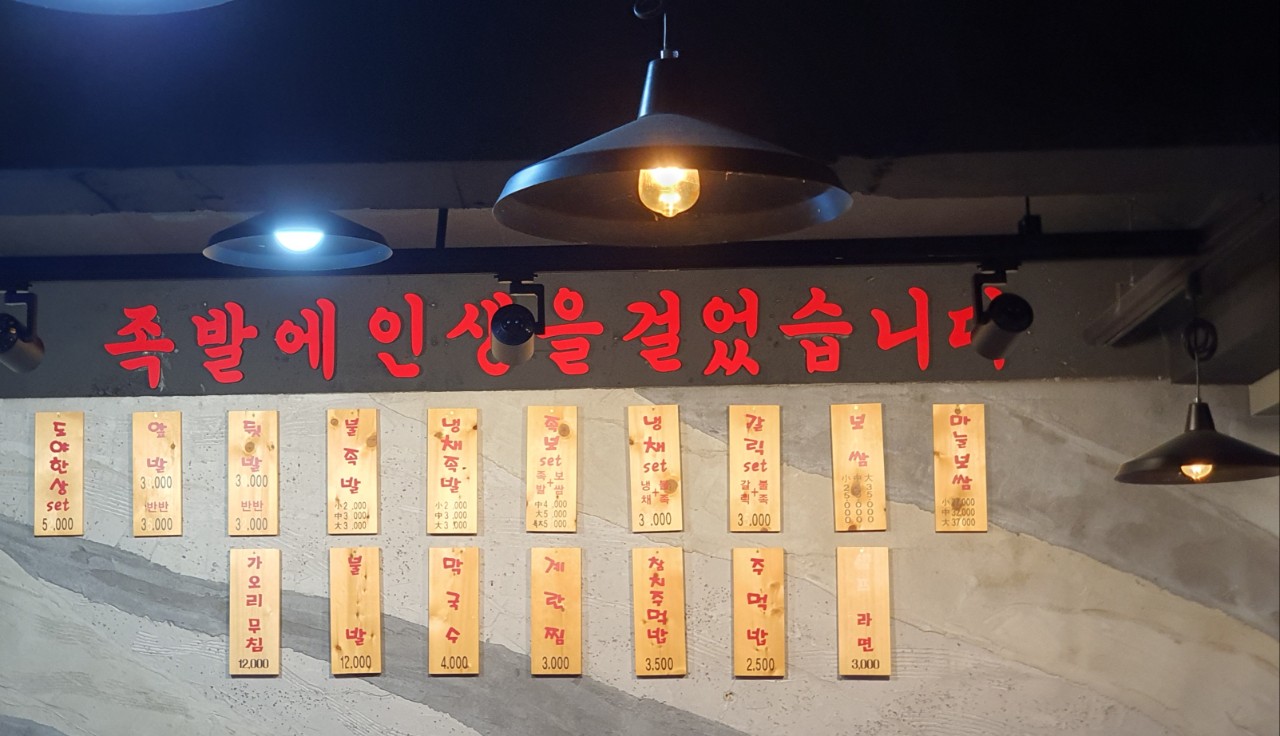 족발에 인생을 걸었습니다
도야한상set
5 ,000
앞발
3 ,000
반반
3 ,000
뒷발
3 ,000
반반
3 ,000
불족발
小2 ,000
中3 ,000
大3 ,000
냉채족발
小2 ,000
中3 ,000
大3 ,000
족보set
족발+보쌈
中4 ,000
大5 ,000
냉채set
냉채+불족
3 ,000
갈릭set
갈릭+불족
3 ,000
보쌈
小25000
大35000
마늘보쌈
中32,000
大37000
가오리무침
12,000
불발
12,000
막국수
4,000
계란찜
3,000
참치주먹밥
3,500
주먹밥
2,500
라면
3,000